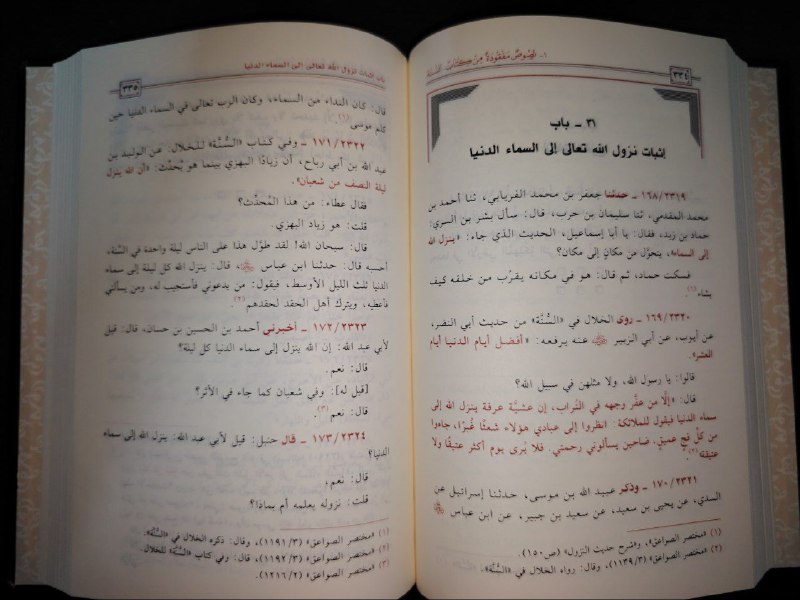 ١- نصوص مفقودة من كتاب السنة
٣٣٤
٣١ - باب
إثبات نزول الله تعالى إلى السماء الدنيا
١٦٨/٢٣١٩ - حدثنا جعفر بن محمد الفريابي، ثنا أحمد بن
محمد المقدمي، ثنا سليمان بن حرب، قال: سأل بشر بن السري:
حماد بن زيد، فقال: يا أبا إسماعيل، الحديث الذي جاء: «ينزل الله
إلى السماء»، يتحوَّل من مكانٍ إلى مكان؟
فسكت حماد، ثم قال: هو في مكانه يقرُب من خلقه كيف
يشاء(١).
١٦٩/٢٣٢٠ - روى الخلال في «السُّنَّة» من حديث أبي النضر،
عن أيوب، عن أبي الزبير ﷺ عنه يرفعه: «أفضل أيام الدنيا أيام
العشر».
قالوا: يا رسول الله، ولا مثلهن في سبيل الله؟
قال: «إلَّا من عفَّر وجهه في التُّراب، إن عشيَّة عرفة ينزل الله إلى
سماء الدنيا فيقول للملائكة: انظروا إلى عبادي هؤلاء شعثًا غُبرًا، جاءوا
من كلِّ فج عميق، ضاحين يسألوني رحمتي. فلا يُرى يوم أكثر عتيقًا ولا
عتيقة»(٢).
١٧٠/٢٣٢١ - وذكر عبيد الله بن موسى، حدثنا إسرائيل عن
السدي، عن يحيى بن سعيد، عن سعيد بن جبير، عن ابن عباس
(١) «مختصر الصواعق»، و«شرح حديث النزول» (ص١٥٠).
(٢) «مختصر الصواعق» (١١٣٩/٣)، وقال: رواه الخلال في «السُّنَّة».
باب إثبات نزول الله تعالى إلى السماء الدنيا
٣٣٥
قال: كان النداء من السماء، وكان الرب تعالى في السماء الدنيا حين
كلم موسى(١).
١٧١/٢٣٢٢ - وفي كتاب «السُّنَّة» للخلال: عن الوليد بن
عبد الله بن أبي رباح، أن زيادًا البهزي بينما هو يُحدِّث: «أن الله ينزل
ليلة النصف من شعبان».
فقال عطاء: من هذا المُحدِّث؟
قلت: هو زياد البهزي.
قال: سبحان الله! لقد طوَّل هذا على الناس ليلة واحدة في السَّنة،
أحسبه قال: حدثنا ابن عباس ﷺ، قال: ينزل الله كل ليلة إلى سماء
الدنيا ثلث الليل الأوسط، فيقول: من يدعوني فأستجيب له، ومن يسألني
فأعطيه، ويترك أهل الحقد لحقدهم(٢).
١٧٢/٢٣٢٣ - أخبرني أحمد بن الحسين بن حسان، قال: قيل
لأبي عبد الله: إن الله ينزل إلى سماء الدنيا كل ليلة؟
قال: نعم.
[قيل له]: وفي شعبان كما جاء في الأثر؟
قال: نعم(٣).
١٧٣/٢٣٢٤ - قال حنبل: قيل لأبي عبد الله: ينزل الله إلى سماء
الدنيا؟
قال: نعم.
قلت: نزوله بعلمه أم بماذا؟
(١) «مختصر الصواعق» (١١٩١/٣)، وقال: ذكره الخلال في «السُّنَّة».
(٢) «مختصر الصواعق» (١١٩٢/٣)، قال: وفي كتاب «السُّنَّة» للخلال.
(٣) «مختصر الصواعق» (١٢١٦/٢).